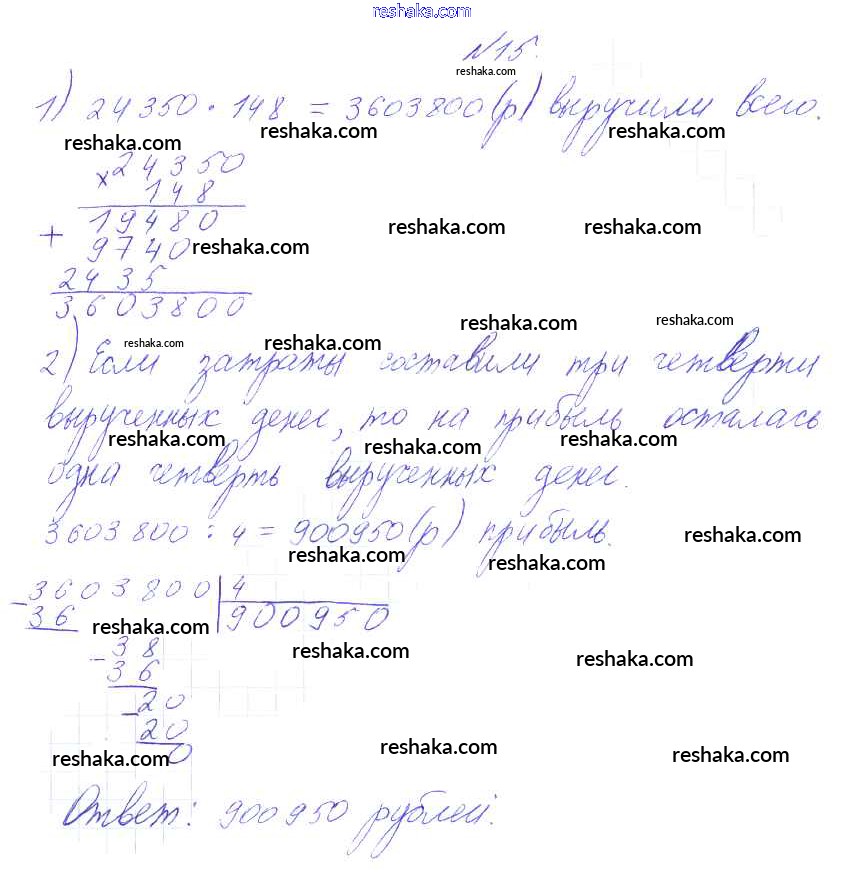 reshaka.com
№15.
reshaka.com
1) 24350 · 148 = 3603800(р) выручили всего.
reshaka.com reshaka.com reshaka.com
× 24350
148
19480
+ 9740
reshaka.com reshaka.com reshaka.com
2435
3603800
reshaka.com reshaka.com
2) Если затраты составили три четверти
reshaka.com reshaka.com
вырученных денег, то на прибыль осталась
reshaka.com reshaka.com reshaka.com
одна четверть вырученных денег.
3603800 : 4 = 900950(р) прибыль.
reshaka.com reshaka.com reshaka.com
- 3603800 | 4
36 900950
reshaka.com
- 38
reshaka.com reshaka.com
36
- 20
20
0
reshaka.com reshaka.com reshaka.com
Ответ: 900950 рублей.